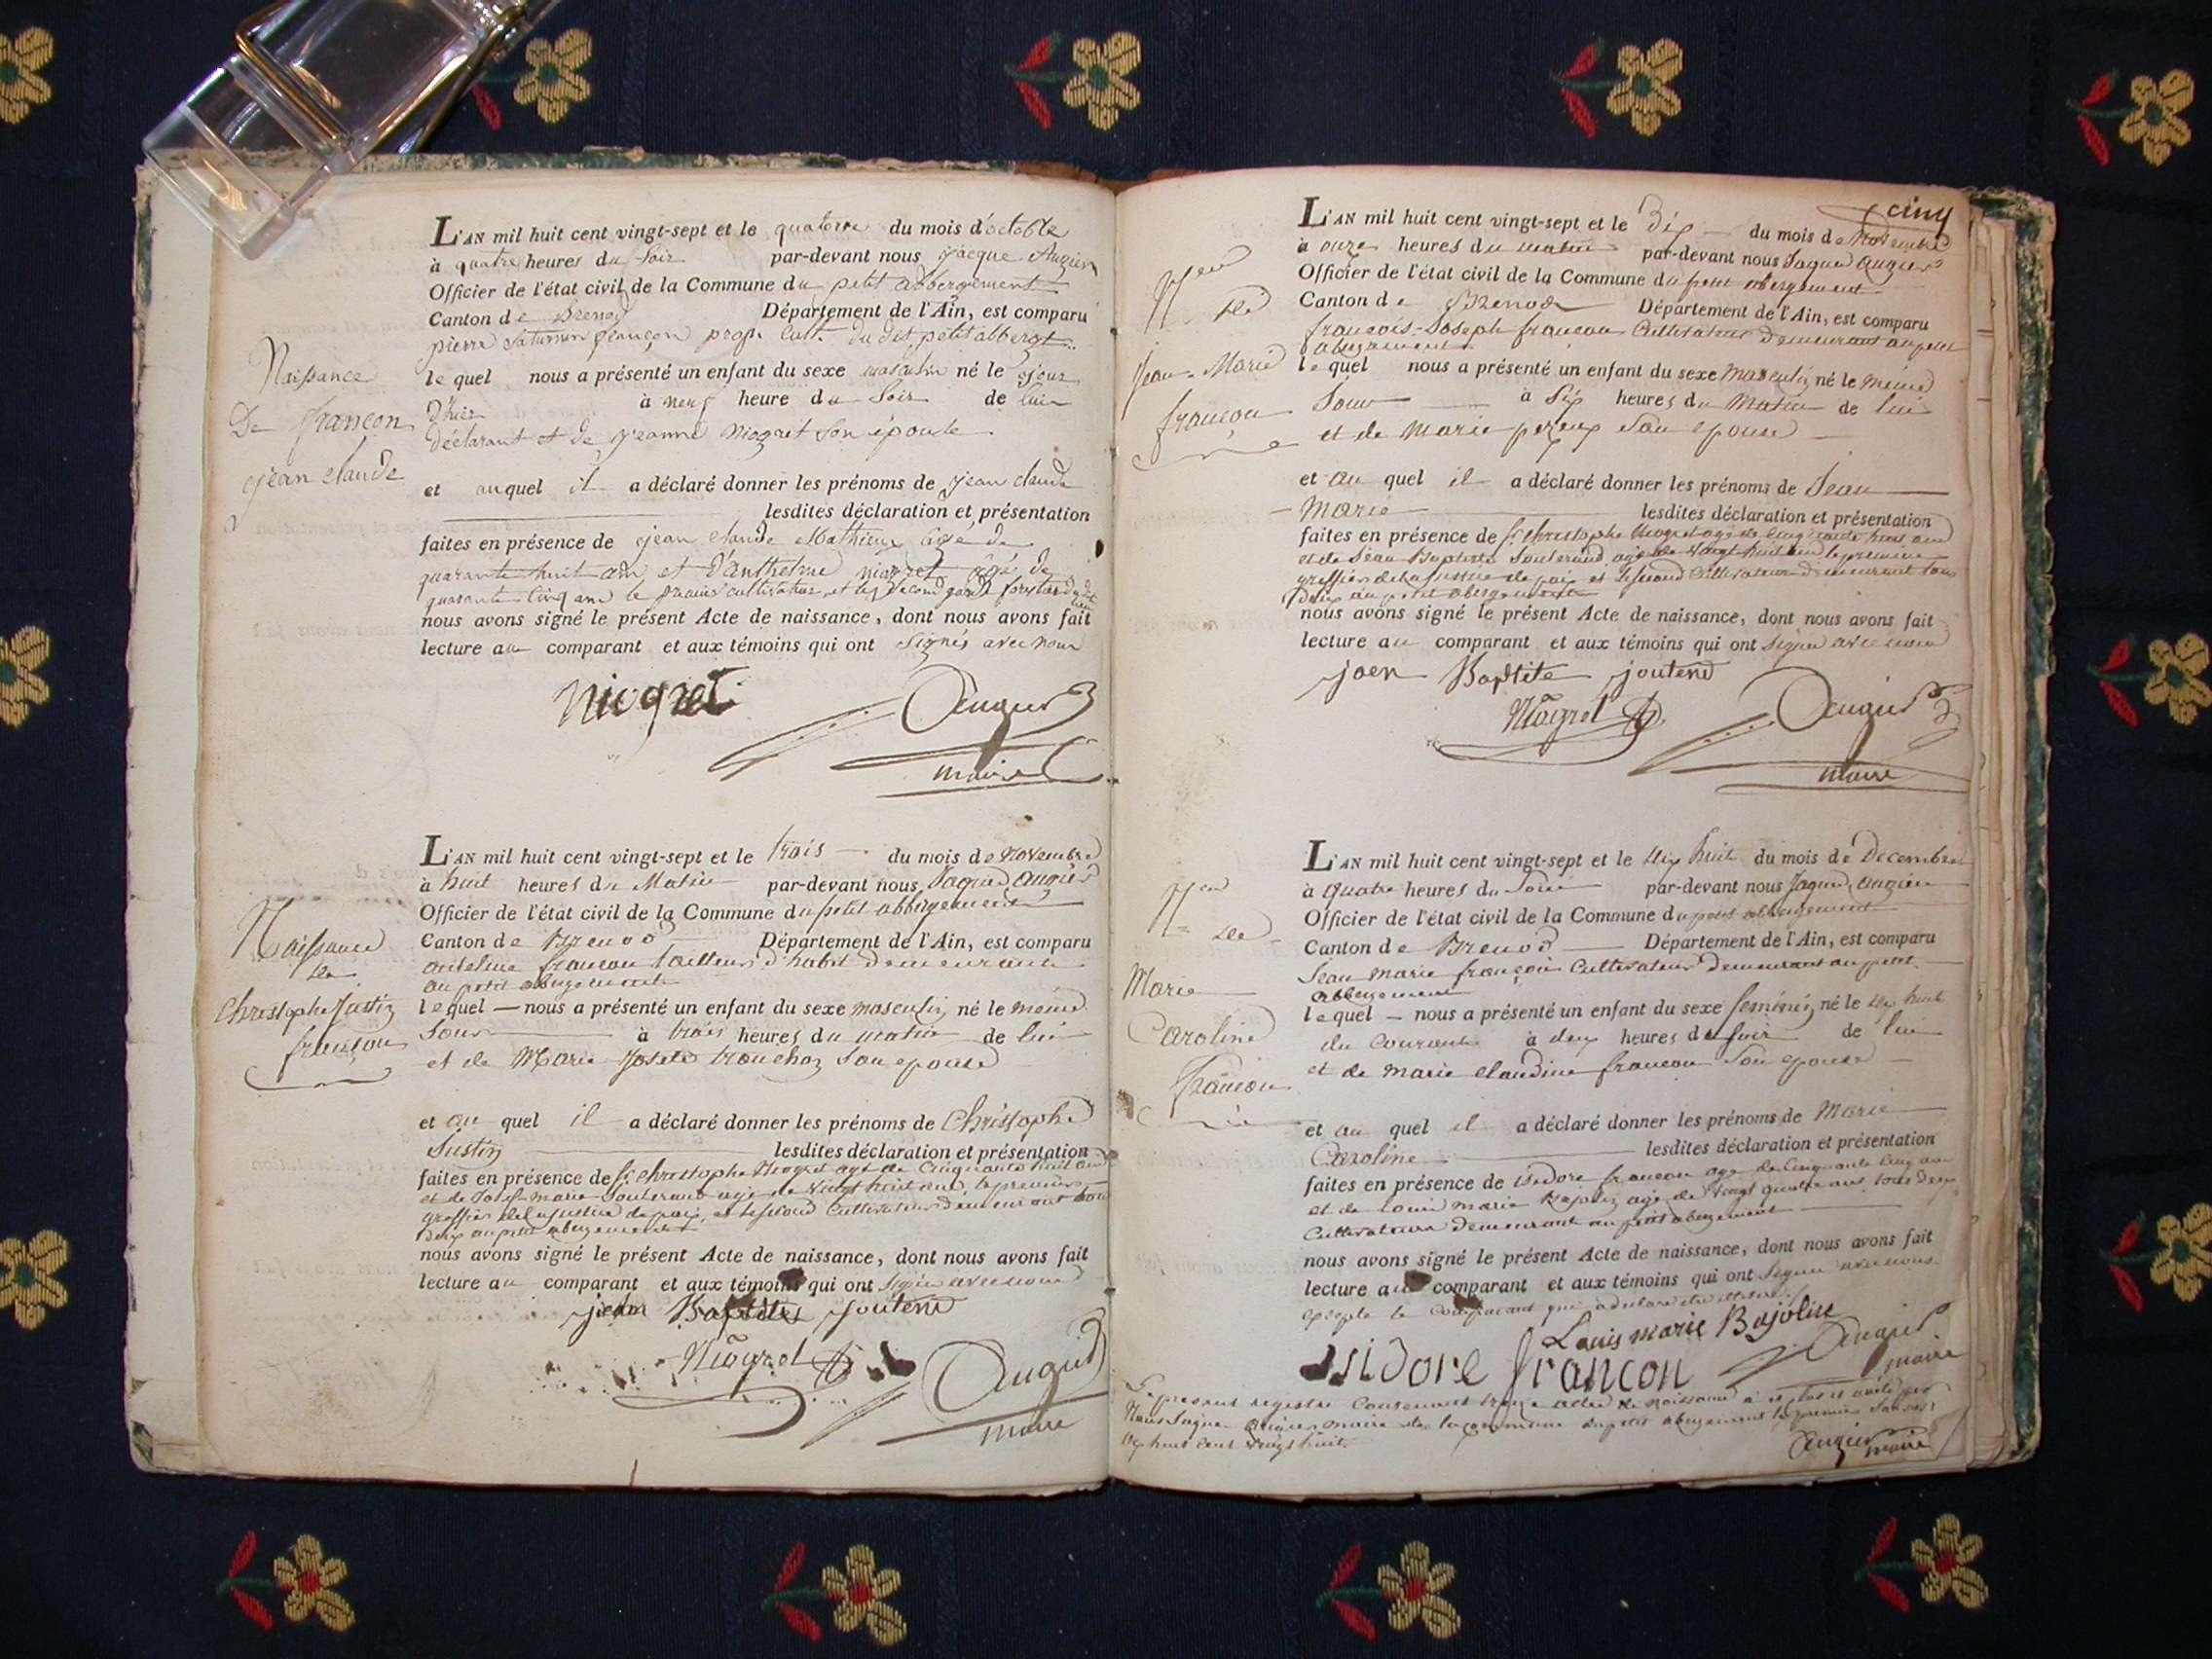 L'AN mil huit cent vingt-sept et le quatorze du mois d'octobre
à quatre heures du soir par-devant nous Jacque Augier
Officier de l'état civil de la Commune du petit abbergement
Canton de Brenod Département de l'Ain, est comparu
pierre Saturnin françon prop. cult. du dit petit abbergt.
Naissance
De françon
jean claude
le quel nous a présenté un enfant du sexe masculin né le jour
d'hier à neuf heure du soir de lui
déclarant et de jeanne niogret son épouse
et auquel il a déclaré donner les prénoms de jean claude
lesdites déclaration et présentation
faites en présence de jean claude Mathieu âgé de
quarante huit ans et d'anthelme niogret âgé de
quarante cinq ans le premier cultivateur et le second garde forestier
nous avons signé le présent Acte de naissance, dont nous avons fait
lecture au comparant et aux témoins qui ont signés avec nous
Niogret
Augier
maire
L'AN mil huit cent vingt-sept et le trois du mois de Novembre
à huit heures du Matin par-devant nous Jaques Augier
Officier de l'état civil de la Commune du petit abbergement
Canton de Brenod Département de l'Ain, est comparu
antelme françon tailleur d'habit demeurant
au petit abergement
Naissance
de
Christophe Justin
françon
lequel nous a présenté un enfant du sexe masculin né le meme
Jour à trois heures du matin de lui
et de Marie Josete tronchoz son epouse
et au quel il a déclaré donner les prénoms de Christophe
Justin lesdites déclaration et présentation
faites en présence de Sr. Christophe Niogret agé de Cinquante huit ans
et de marie Jouterand agé de vingt huit ans, le premier
greffier de la justice de paix, et le second Cultivateur demeurant tous
deux au petit abergement
nous avons signé le présent Acte de naissance, dont nous avons fait
lecture au comparant et aux témoins qui ont signé avec nous
jean Baptite joutend
Niogret
Augier
maire
cinq
L'AN mil huit cent vingt-sept et le Dix du mois de Novembre
à onze heures du matin par-devant nous Jaques Augier
Officier de l'état civil de la Commune du petit abergement
Canton de Brenod Département de l'Ain, est comparu
françois-Joseph françon Cultivateur demeurant au petit
abergement
Nce
de
Jean-Marie
françon
lequel nous a présenté un enfant du sexe masculin né le meme
Jour à Six heures du Matin de lui
et de Marie pereux son epouse
et au quel il a déclaré donner les prénoms de Jean
Marie lesdites déclaration et présentation
faites en présence de Sr. Christophe Niogret agé de Cinquante huit ans
et de Jean Baptiste Jouterand agé de vingt huit ans le premier
greffier de la justice de paix et le second Cultivateur demeurant tous
deux au petit abergement
nous avons signé le présent Acte de naissance, dont nous avons fait
lecture au comparant et aux témoins qui ont signé avec nous
joen Baptite joutend
Niogret
Augier
maire
L'AN mil huit cent vingt-sept et le dix huit du mois de Decembre
à quatre heures du Soir par-devant nous Jaques Augier
Officier de l'état civil de la Commune du petit abbergement
Canton de Brenod Département de l'Ain, est comparu
Jean marie françon Cultivateur demeurant au petit
abbergement
Nce
de
Marie
Caroline
françon
lequel nous a présenté un enfant du sexe feminin né le dix huit
du Courant à deux heures du soir de lui
et de marie claudine françon son epouse
et au quel il a déclaré donner les prénoms de Marie
Caroline lesdites déclaration et présentation
faites en présence de isidore françon age de Cinquante Cinq ans
et de Louis marie Bajolin age de vingt quatre ans tous deux
Cultivateurs demeurant au petit abergement
nous avons signé le présent Acte de naissance, dont nous avons fait
lecture au comparant et aux témoins qui ont signé avec nous
excepte le Comparant qui a declare etre illitere
Louis marie Bajolin
isidore francon
Augier
maire
Le present registre Contenant treize actes de naissance a ete clos et arrêté par
Nous Jaques Augier maire de la commune du petit abergement le premier Janvier
dix huit cent vingt huit
Augier maire